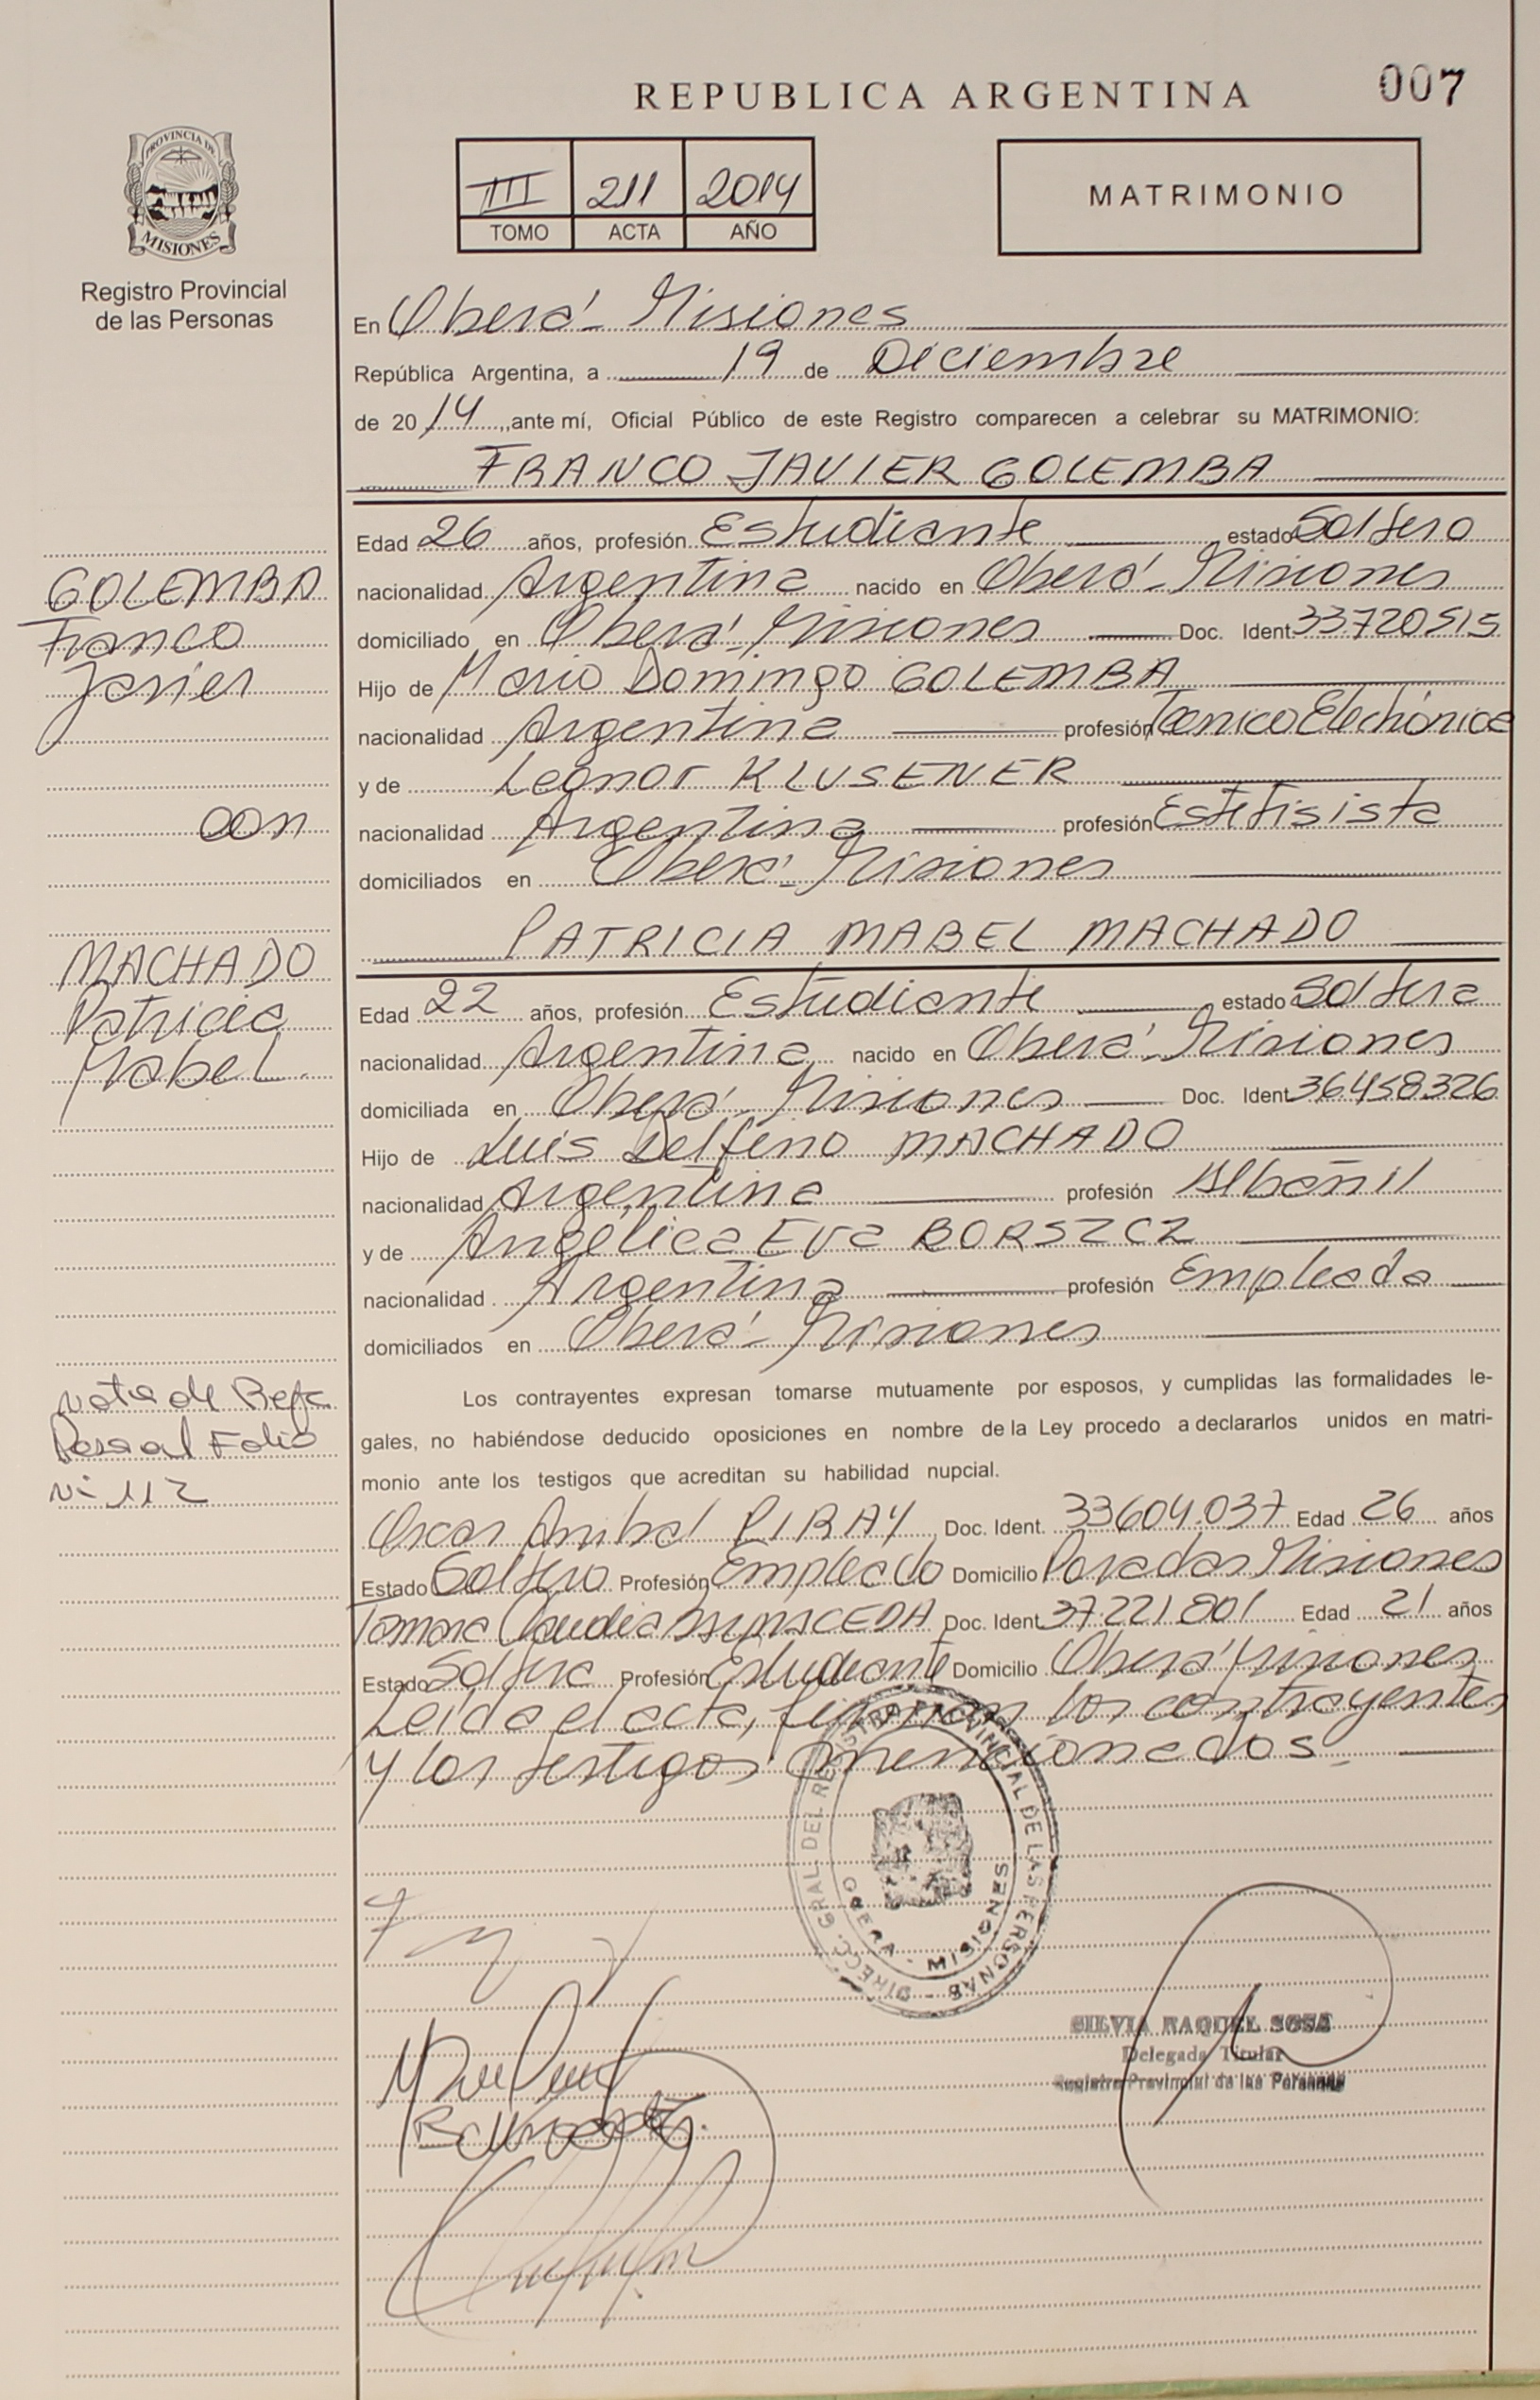 REPUBLICA ARGENTINA
007
PROVINCIA DE
MISIONES
Registro Provincial
de las Personas
III 211 2014
TOMO ACTA AÑO
MATRIMONIO
En Oberá - Misiones
República Argentina, a 19 de Diciembre
de 2014, ante mí, Oficial Público de este Registro comparecen a celebrar su MATRIMONIO:
FRANCO JAVIER GOLEMBA
Edad 26 años, profesión Estudiante estado Soltero
nacionalidad Argentina nacido en Oberá - Misiones
domiciliado en Oberá - Misiones Doc. Ident 33720515
Hijo de Mario Domingo GOLEMBA
nacionalidad Argentina profesión Tecnico Electrónica
y de Leonor KLUSENER
nacionalidad Argentina profesión Estetisista
domiciliados en Oberá - Misiones
PATRICIA MABEL MACHADO
Edad 22 años, profesión Estudiante estado Soltera
nacionalidad Argentina nacido en Oberá - Misiones
domiciliada en Oberá - Misiones Doc. Ident 36458326
Hijo de Luis Delfino MACHADO
nacionalidad Argentina profesión Albañil
y de Angélica Eva BORSZCZ
nacionalidad Argentina profesión Empleada
domiciliados en Oberá - Misiones
Los contrayentes expresan tomarse mutuamente por esposos, y cumplidas las formalidades le-
gales, no habiéndose deducido oposiciones en nombre de la Ley procedo a declararlos unidos en matri-
monio ante los testigos que acreditan su habilidad nupcial.
Oscar Anibal PIRAY Doc. Ident. 33604.037 Edad 26 años
Estado Soltero Profesión Empleado Domicilio Posadas Misiones
Tamara Claudia Doc. Ident. 37.221801 Edad 21 años
Estado Soltera Profesión Estudiante Domicilio Oberá Misiones
Leida el acta, firman los contrayentes
y los testigos mencionados.
GOLEMBA
Franco
Javier
con
MACHADO
Patricia
Mabel.
Nota de Refa
Pasa al Folio
Nº 112
DIRECC. GRAL. DEL REGISTRO PROVINCIAL DE LAS PERSONAS -
OBERA - MISIONES
SILVIA RAQUEL SOSA
Delegada Titular
Registro Provincial de las Personas